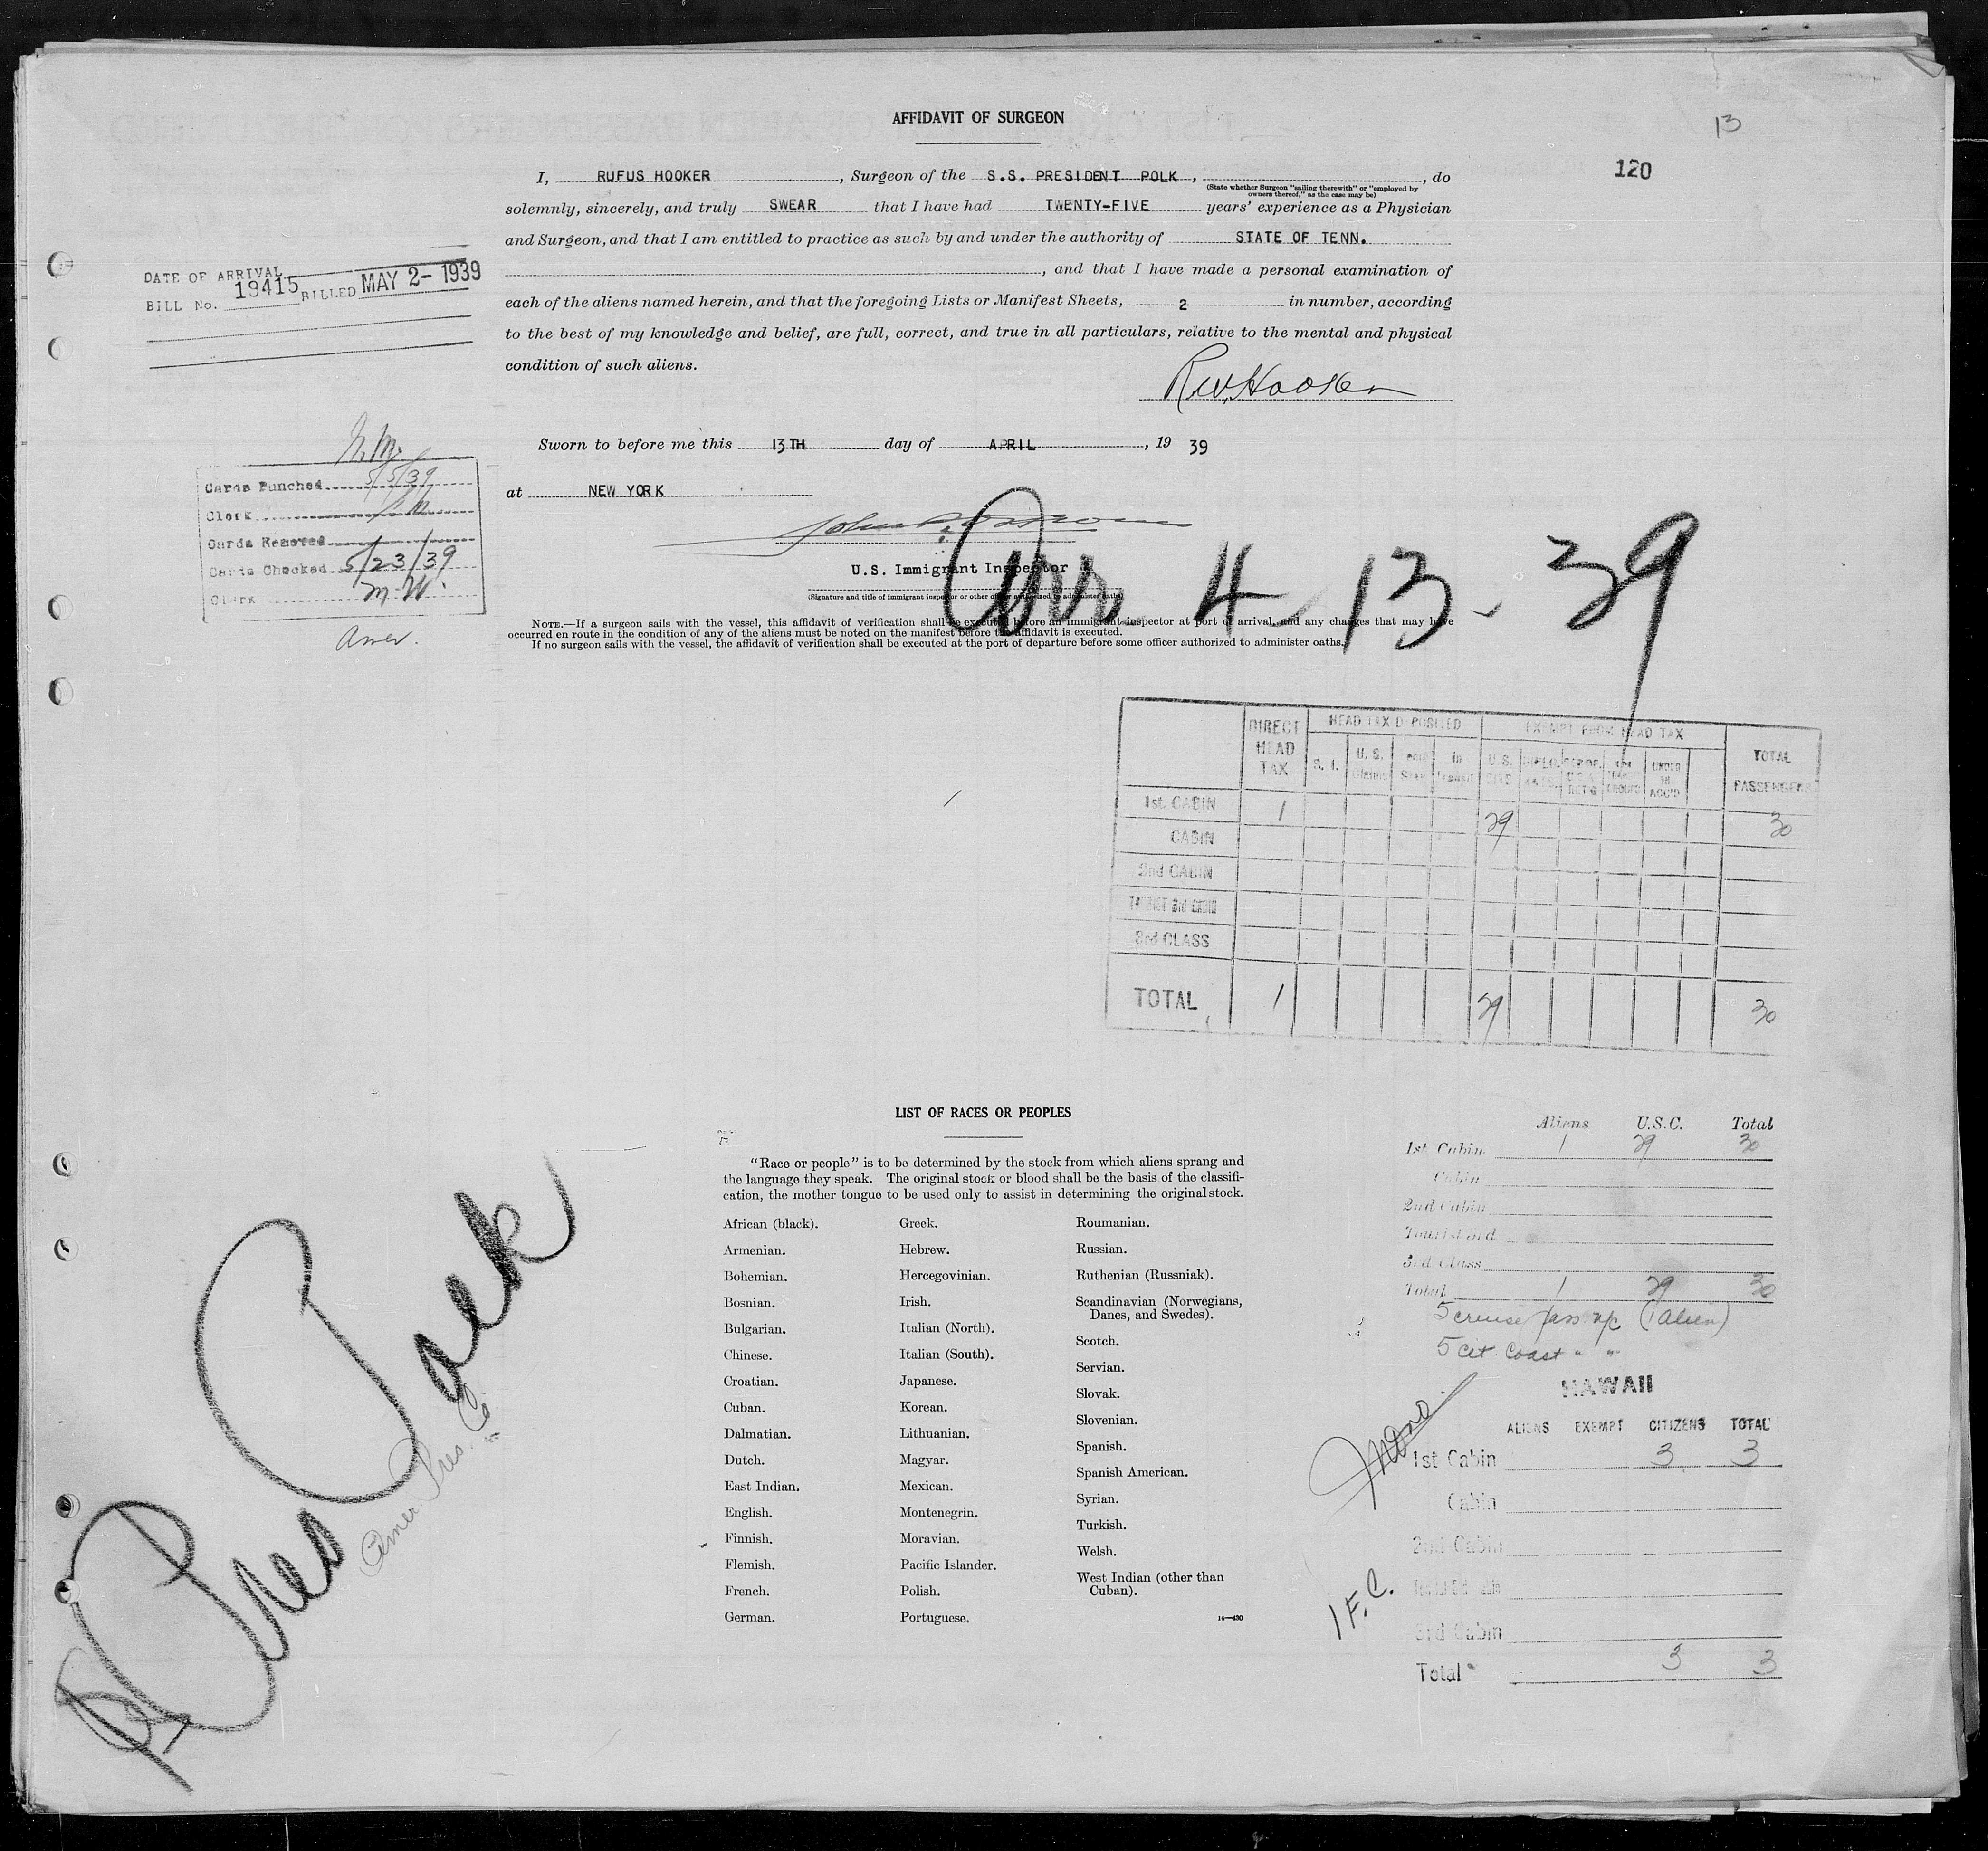 AFFIDAVIT OF SURGEON
13
120
I, RUFUS HOOKER, Surgeon of the S.S. PRESIDENT POLK, , do
(State whether Surgeon "sailing therewith" or "employed by
owners thereof," as the case may be)
solemnly, sincerely, and truly SWEAR that I have had TWENTY-FIVE years' experience as a Physician
and Surgeon, and that I am entitled to practice as such by and under the authority of STATE OF TENN.
, and that I have made a personal examination of
each of the aliens named herein, and that the foregoing Lists or Manifest Sheets, 2 in number, according
to the best of my knowledge and belief, are full, correct, and true in all particulars, relative to the mental and physical
condition of such aliens.
R.W. Hooker
DATE OF ARRIVAL
BILL No. 19415 BILLED MAY 2- 1939
Sworn to before me this 13TH day of APRIL, 19 39
at NEW YORK
U.S. Immigrant Inspector
(Signature and title of immigrant inspector or other officer authorized to administer oaths)
Arr 4-13-39
Cards Punched 5/5/39
Clerk
Cards Removed
Cards Checked 5/23/39
Clerk M.W.
Amer.
NOTE.—If a surgeon sails with the vessel, this affidavit of verification shall be executed before an immigrant inspector at port of arrival, and any changes that may have
occurred en route in the condition of any of the aliens must be noted on the manifest before the affidavit is executed.
If no surgeon sails with the vessel, the affidavit of verification shall be executed at the port of departure before some officer authorized to administer oaths.
DIRECT HEAD TAX HEAD TAX DEPOSITED EXEMPT FROM HEAD TAX TOTAL PASSENGERS
S. I. U. S. Claims in Transit U.S. CITS UNDER 16 ACC'D
1st CABIN 1 29 30
CABIN
2nd CABIN
TOURIST 3rd CABIN
3rd CLASS
TOTAL 1 29 30
LIST OF RACES OR PEOPLES
"Race or people" is to be determined by the stock from which aliens sprang and
the language they speak. The original stock or blood shall be the basis of the classifi-
cation, the mother tongue to be used only to assist in determining the original stock.
African (black).
Armenian.
Bohemian.
Bosnian.
Bulgarian.
Chinese.
Croatian.
Cuban.
Dalmatian.
Dutch.
East Indian.
English.
Finnish.
Flemish.
French.
German.
Greek.
Hebrew.
Hercegovinian.
Irish.
Italian (North).
Italian (South).
Japanese.
Korean.
Lithuanian.
Magyar.
Mexican.
Montenegrin.
Moravian.
Pacific Islander.
Polish.
Portuguese.
Roumanian.
Russian.
Ruthenian (Russniak).
Scandinavian (Norwegians,
Danes, and Swedes).
Scotch.
Servian.
Slovak.
Slovenian.
Spanish.
Spanish American.
Syrian.
Turkish.
Welsh.
West Indian (other than
Cuban).
14—430
Aliens U.S.C. Total
1st Cabin 1 29 30
Cabin
2nd Cabin
Tourist 3rd
3rd Class
Total 1 29 30
5 cruise pass n/c (1 alien)
5 cit. Coast " "
HAWAII
ALIENS EXEMPT CITIZENS TOTAL
1st Cabin 3 3
Cabin
2nd Cabin
3rd Cabin
Total 3 3
1 F.C.
Pres Polk
Amer Pres. Co